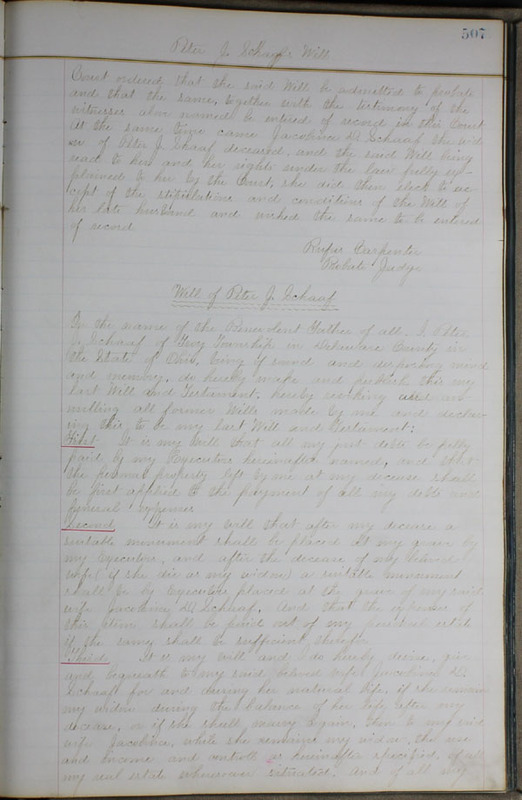 507
Peter J. Schaaf's Will
Court ordered that the said Will be admitted to probate
and that the same, together with the testimony of the
witnesses above named be entered of record in this Court
At the same time came Jacobina M. Schaaf the wid-
ow of Peter J. Schaaf deceased, and the said Will being
read to her and her rights under the law fully ex-
plained to her by the Court, she did then elect to ac-
cept of the stipulations and conditions of the Will of
her late husband and wished the same to be entered
of record
Rufus Carpenter
Probate Judge
Will of Peter J. Schaaf
In the name of the Benevolent Father of all. I Peter
J. Schaaf of Troy Township in Delaware County in
the State of Ohio, being of sound and disposing mind
and memory, do hereby make and publish this my
last Will and Testament, hereby revoking and an-
nulling all former Wills made by me and declar-
ing this to be my last Will and Testament:
First It is my Will that all my just debts be fully
paid by my Executors hereinafter named, and that
the personal property left by me at my decease shall
be first applied to the payment of all my debts and
funeral expenses
Second It is my will that after my decease a
suitable monument shall be placed at my grave by
my Executors, and after the decease of my beloved
wife (if she die as my widow) a suitable monument
shall be by Executors placed at the grave of my said
wife Jacobina M. Schaaf. And that the expenses of
this item shall be paid out of my personal estate
if the same shall be sufficient therefor
Third It is my will and I do hereby devise, give
and bequeath to my said beloved wife Jacobina M.
Schaaf for and during her natural life, if she remain
my widow during the balance of her life after my
decease, or if she shall marry again, then to my said
wife Jacobina, while she remains my widow, the use
and income and control as hereinafter specified, of all
my real estate wheresoever situated. And of all my